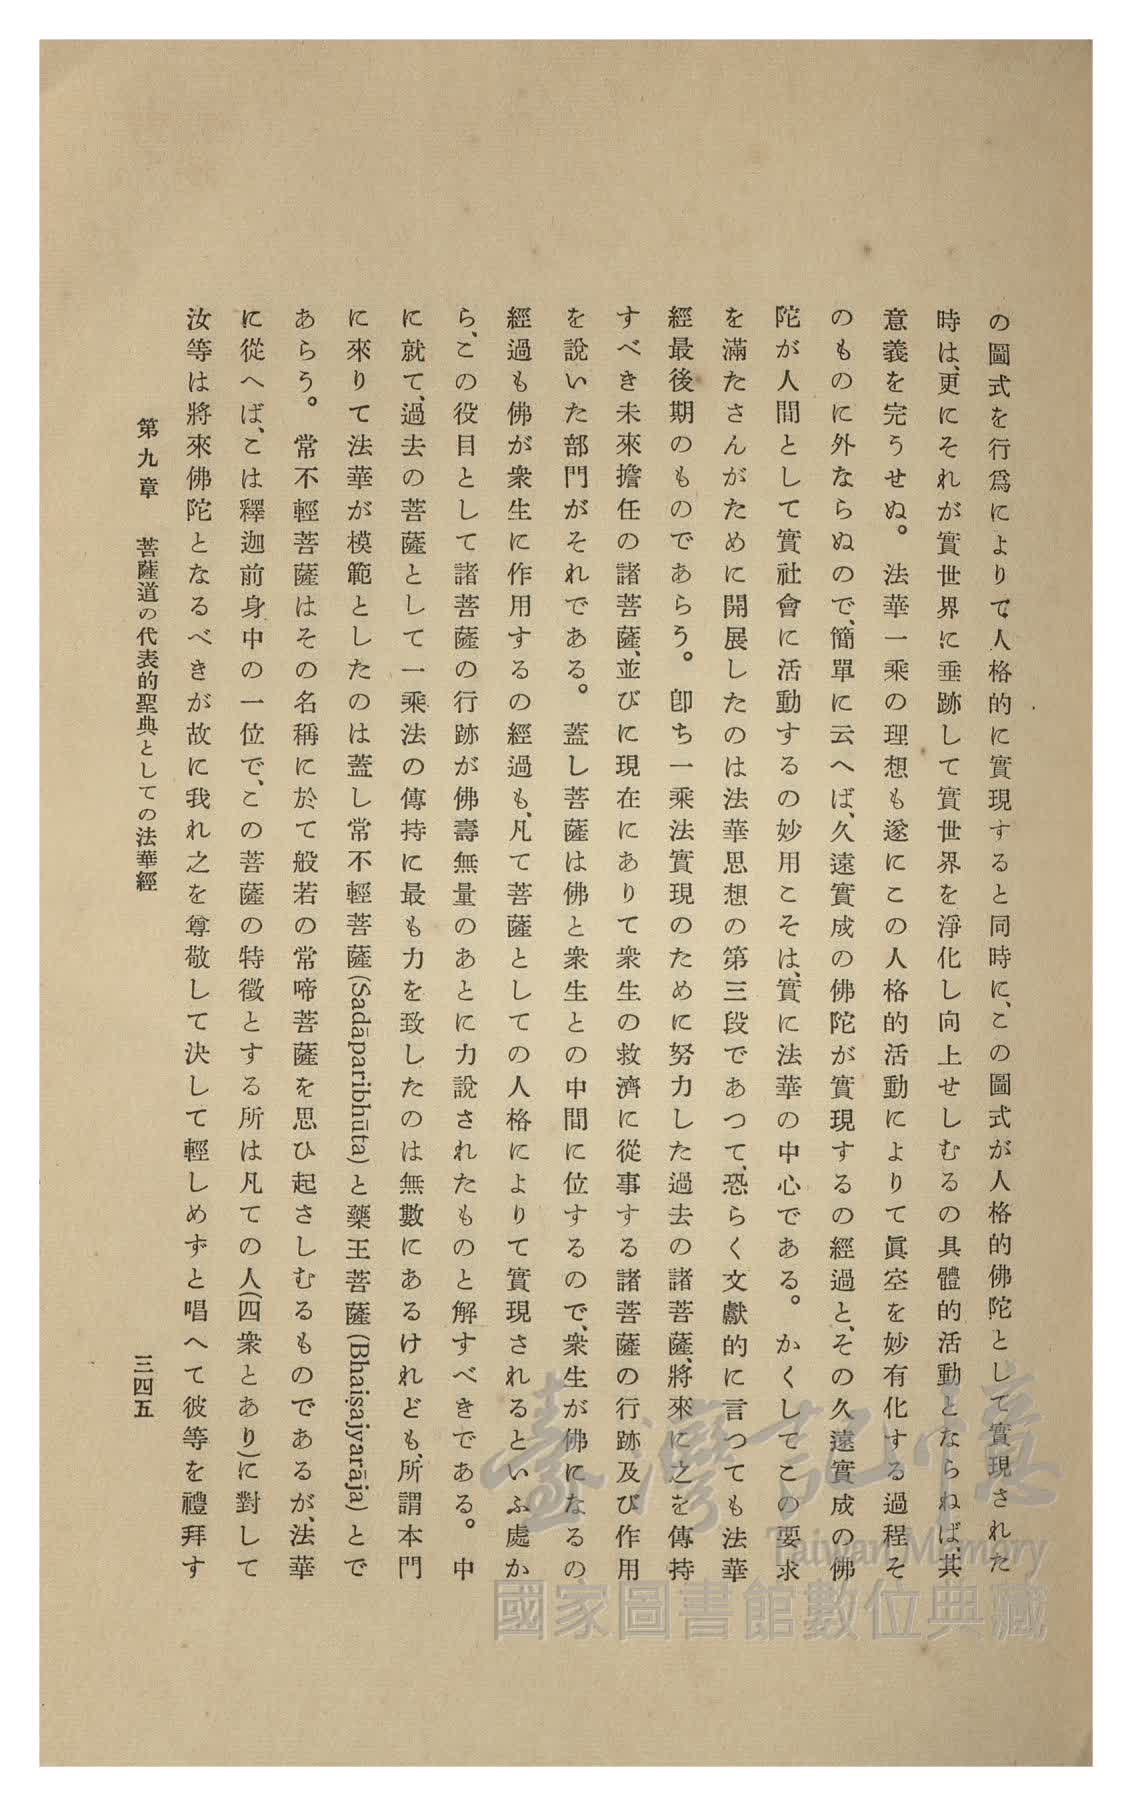 の圖式を行爲によりて人格的に實現すると同時に、この圖式が人格的佛陀として實現された
時は、更にそれが實世界に垂跡して實世界を淨化し向上せしむるの具體的活動とならねば、其
意義を完うせぬ。法華一乘の理想も遂にこの人格的活動によりて眞空を妙有化する過程そ
のものに外ならぬので、簡單に云へば、久遠實成の佛陀が實現するの經過と、その久遠實成の佛
陀が人間として實社會に活動するの妙用こそは、實に法華の中心である。かくしてこの要求
を滿たさんがために開展したのは法華思想の第三段であつて、恐らく文獻的に言つても法華
經最後期のものであらう。卽ち一乘法實現のために努力した過去の諸菩薩、將來に之を傳持
すべき未來擔任の諸菩薩、並びに現在にありて衆生の救濟に從事する諸菩薩の行跡及び作用
を說いた部門がそれである。蓋し菩薩は佛と衆生との中間に位するので、衆生が佛になるの
經過も佛が衆生に作用するの經過も、凡て菩薩としての人格によりて實現されるといふ處か
ら、この役目として諸菩薩の行跡が佛壽無量のあとに力說されたものと解すべきである。中
に就て、過去の菩薩として一乘法の傳持に最も力を致したのは無數にあるけれども、所謂本門
に來りて法華が模範としたのは蓋し常不輕菩薩(Sadāparibhūta)と藥王菩薩(Bhaiṣajyarāja)とで
あらう。常不輕菩薩はその名稱に於て般若の常啼菩薩を思ひ起さしむるものであるが、法華
に從へば、こは釋迦前身中の一位で、この菩薩の特徵とする所は凡ての人(四衆とあり)に對して
汝等は將來佛陀となるべきが故に我れ之を尊敬して決して輕しめずと唱へて彼等を禮拜す
第九章 菩薩道の代表的聖典としての法華經 三四五
臺灣記憶
Taiwan Memory
國家圖書館數位典藏